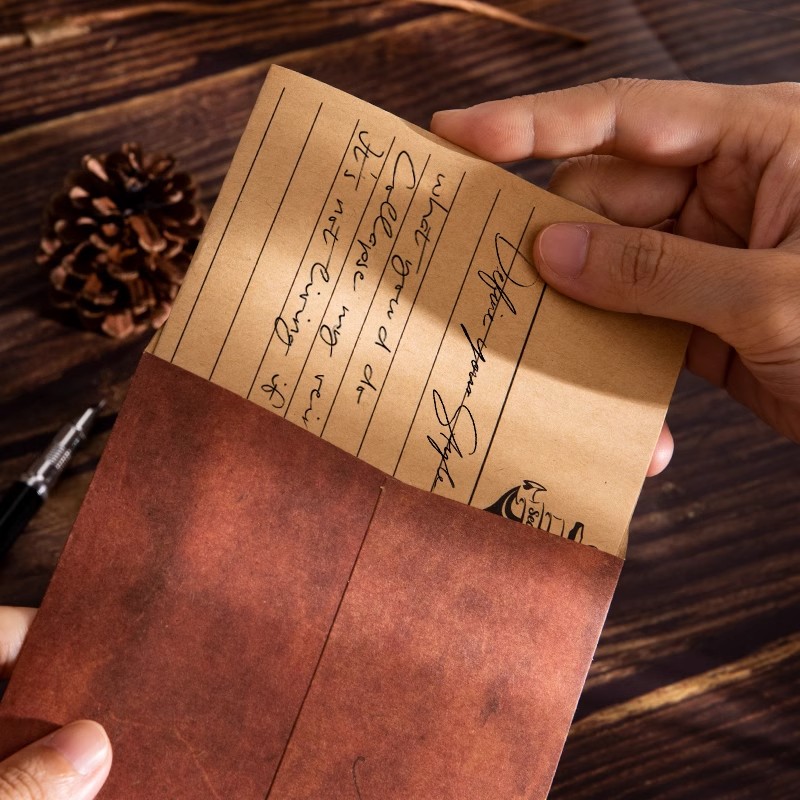 Define your Style
what you'd do
Collapse my vei
It's not living if